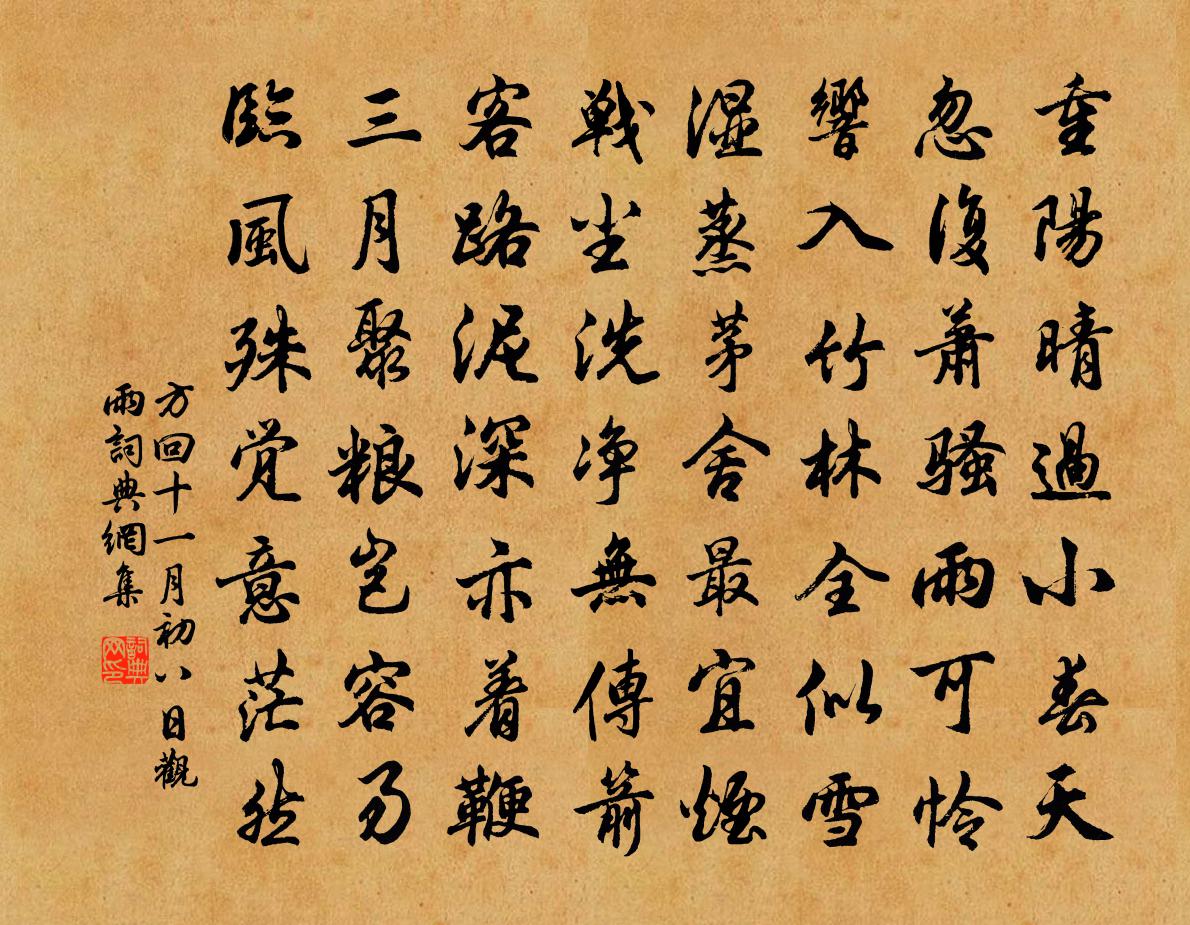 重陽晴過小春天
忽復蕭騷雨可怜
響入竹林全似雪
湿蒸茅舍最宜煙
戦尘洗净無傳箭
客路泥深亦着鞭
三月聚粮岂容易
臨風殊觉意茫然
方回十一月初八日觀
雨詞典網集
詞典网印